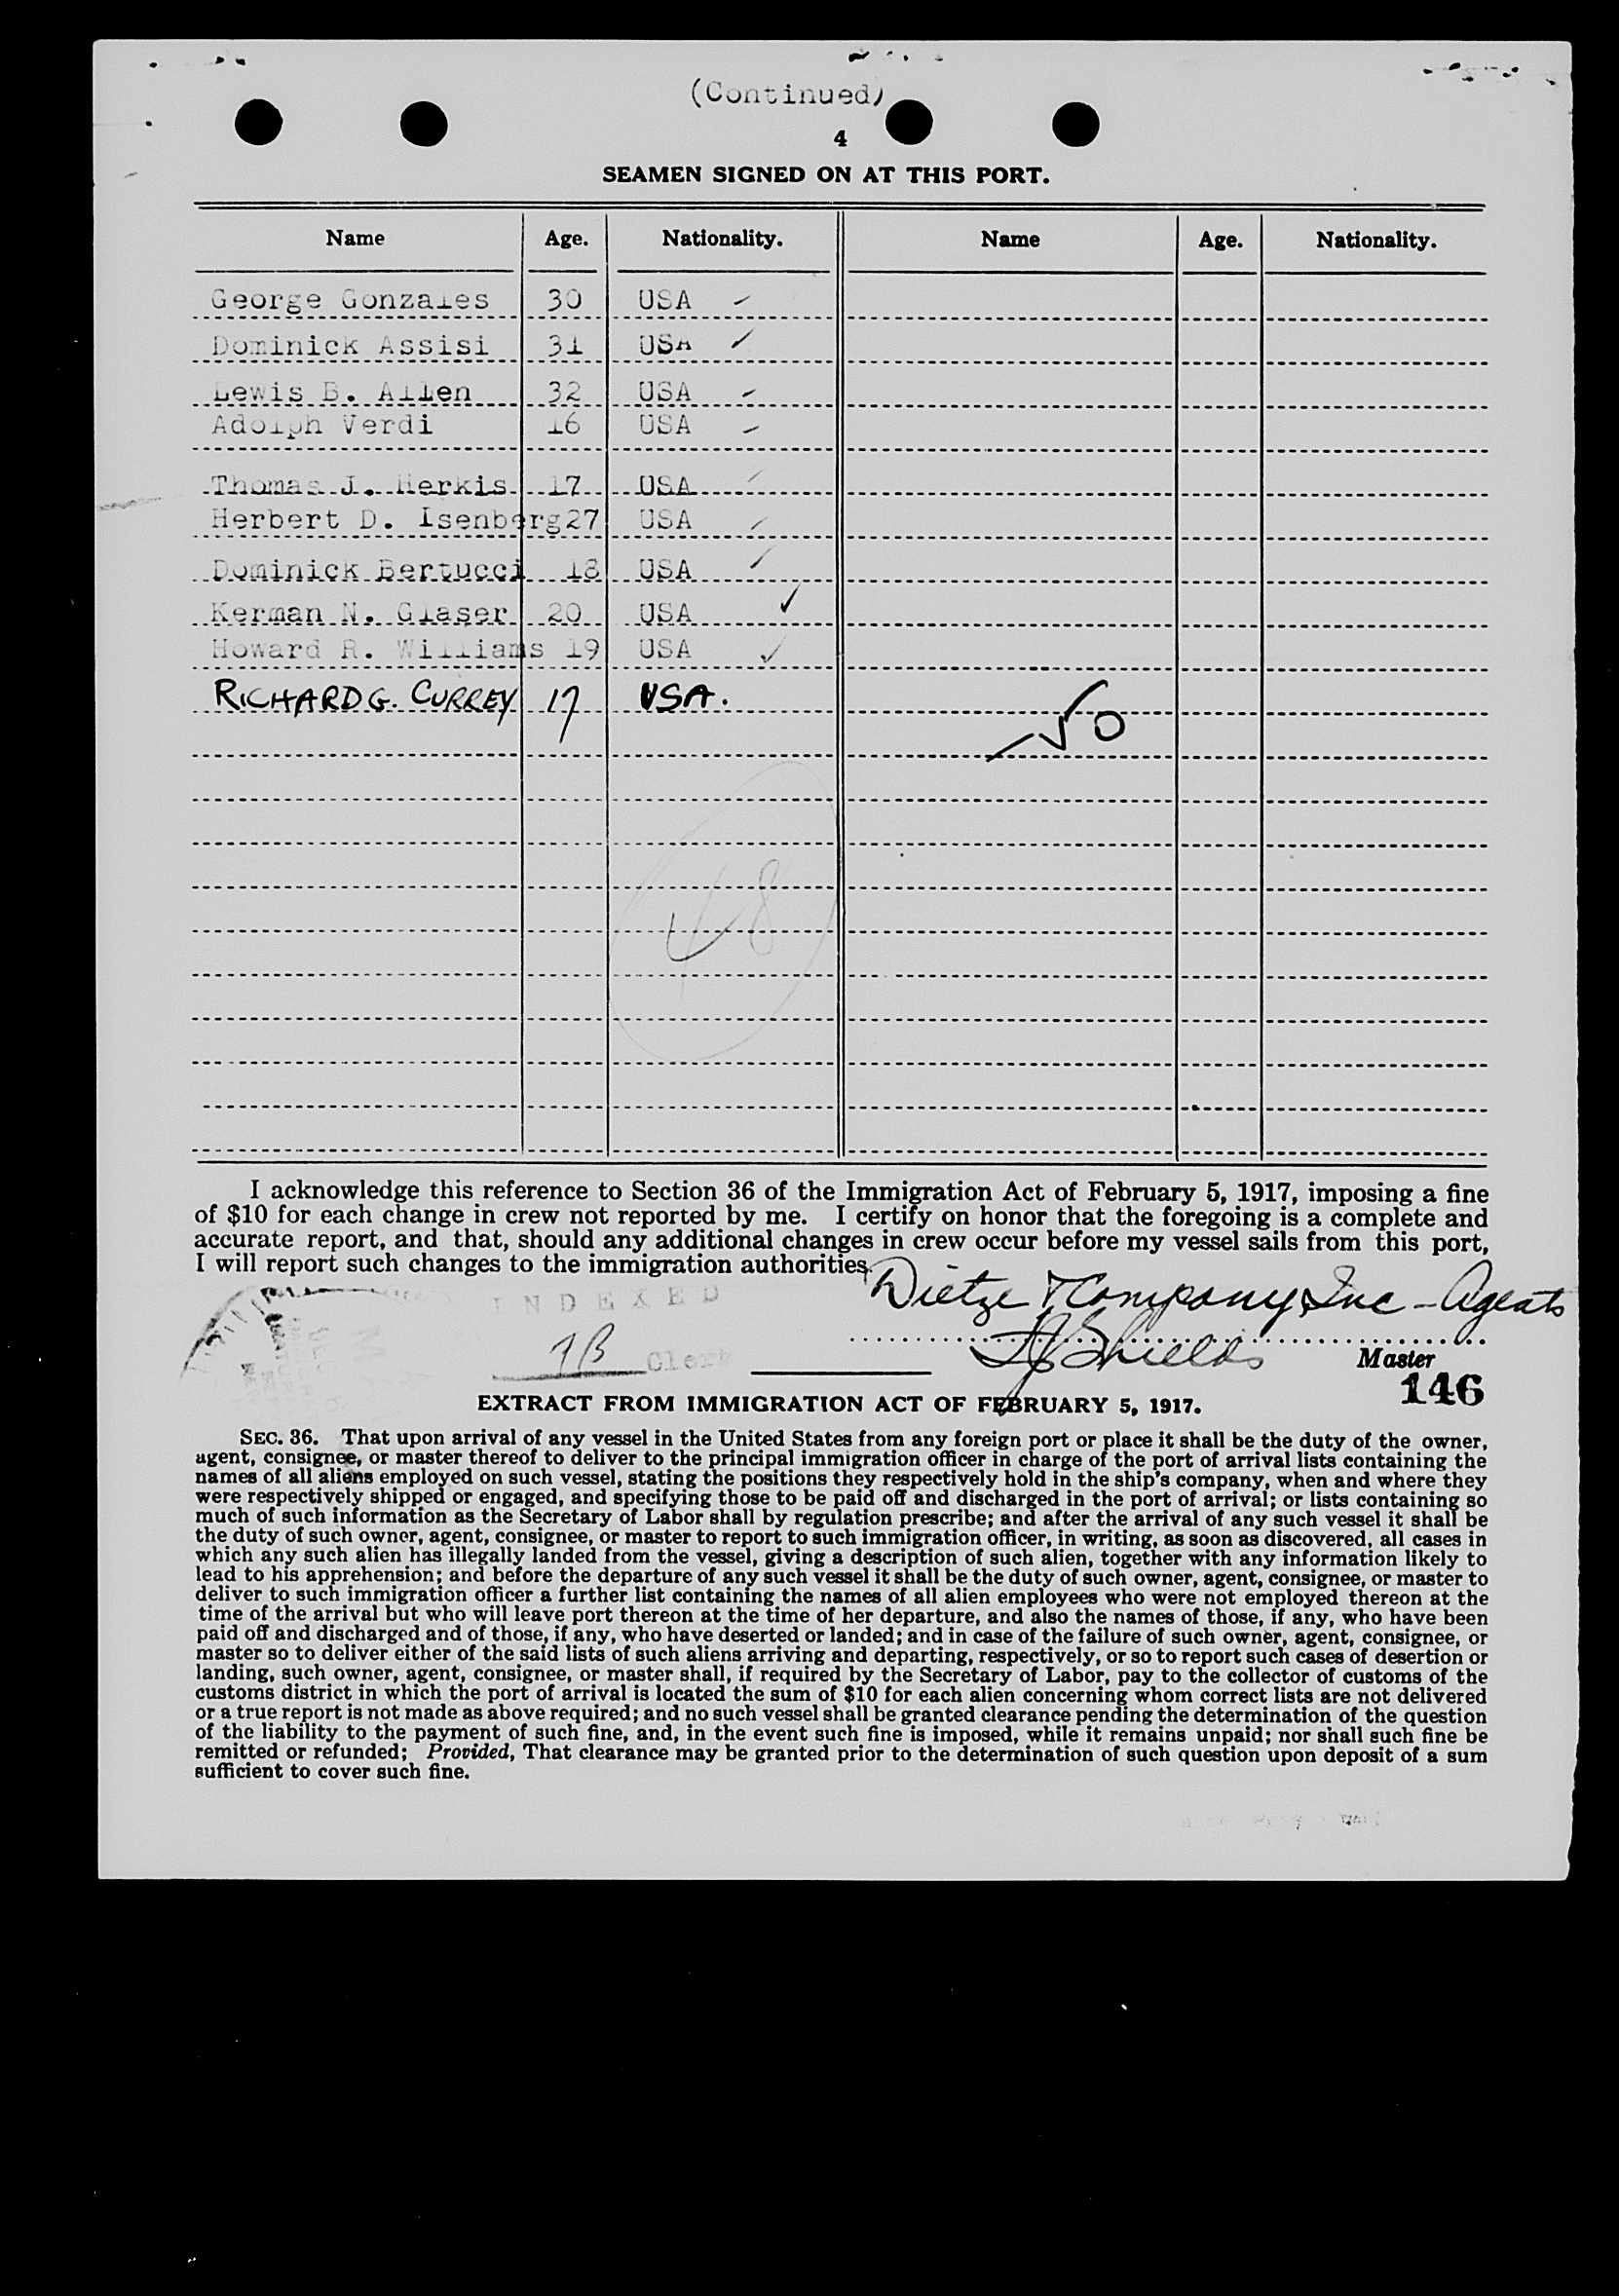 (Continued)
4
SEAMEN SIGNED ON AT THIS PORT.
Name Age. Nationality. Name Age. Nationality.
George Gonzales 30 USA
Dominick Assisi 31 USA
Lewis B. Allen 32 USA
Adolph Verdi 16 USA
Thomas J. Herkis 17 USA
Herbert D. Isenberg 27 USA
Dominick Bertucci 18 USA
Kerman N. Glaser 20 USA
Howard R. Williams 19 USA
RICHARD G. CURREY 17 USA.
48
I acknowledge this reference to Section 36 of the Immigration Act of February 5, 1917, imposing a fine
of $10 for each change in crew not reported by me. I certify on honor that the foregoing is a complete and
accurate report, and that, should any additional changes in crew occur before my vessel sails from this port,
I will report such changes to the immigration authorities.
Dietze & Company, Inc - Agents
INDEXED
Shields
Clerk
Master
146
EXTRACT FROM IMMIGRATION ACT OF FEBRUARY 5, 1917.
SEC. 36. That upon arrival of any vessel in the United States from any foreign port or place it shall be the duty of the owner,
agent, consignee, or master thereof to deliver to the principal immigration officer in charge of the port of arrival lists containing the
names of all aliens employed on such vessel, stating the positions they respectively hold in the ship's company, when and where they
were respectively shipped or engaged, and specifying those to be paid off and discharged in the port of arrival; or lists containing so
much of such information as the Secretary of Labor shall by regulation prescribe; and after the arrival of any such vessel it shall be
the duty of such owner, agent, consignee, or master to report to such immigration officer, in writing, as soon as discovered, all cases in
which any such alien has illegally landed from the vessel, giving a description of such alien, together with any information likely to
lead to his apprehension; and before the departure of any such vessel it shall be the duty of such owner, agent, consignee, or master to
deliver to such immigration officer a further list containing the names of all alien employees who were not employed thereon at the
time of the arrival but who will leave port thereon at the time of her departure, and also the names of those, if any, who have been
paid off and discharged and of those, if any, who have deserted or landed; and in case of the failure of such owner, agent, consignee, or
master so to deliver either of the said lists of such aliens arriving and departing, respectively, or so to report such cases of desertion or
landing, such owner, agent, consignee, or master shall, if required by the Secretary of Labor, pay to the collector of customs of the
customs district in which the port of arrival is located the sum of $10 for each alien concerning whom correct lists are not delivered
or a true report is not made as above required; and no such vessel shall be granted clearance pending the determination of the question
of the liability to the payment of such fine, and, in the event such fine is imposed, while it remains unpaid; nor shall such fine be
remitted or refunded; Provided, That clearance may be granted prior to the determination of such question upon deposit of a sum
sufficient to cover such fine.